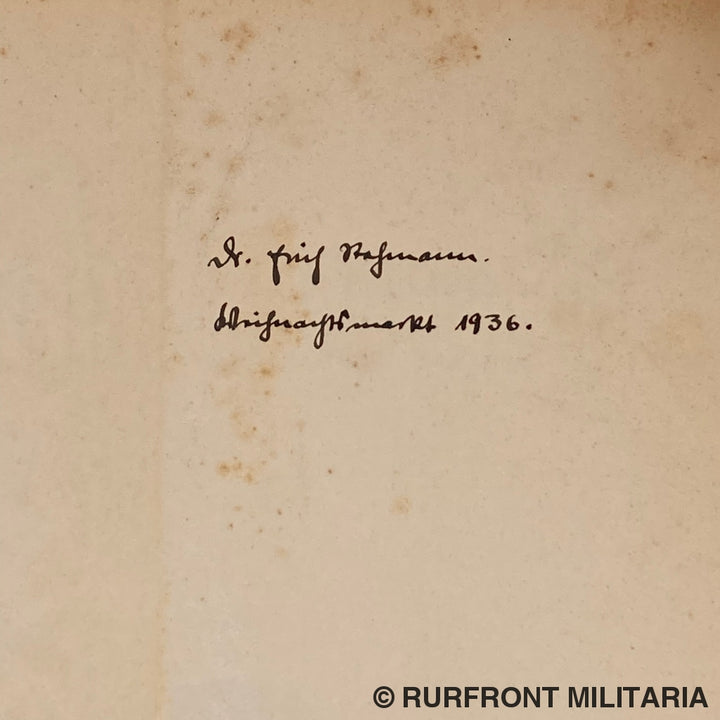 Dr. Erich Rahmann.
Weihnachtsmarkt 1936.
© RURFRONT MILITARIA